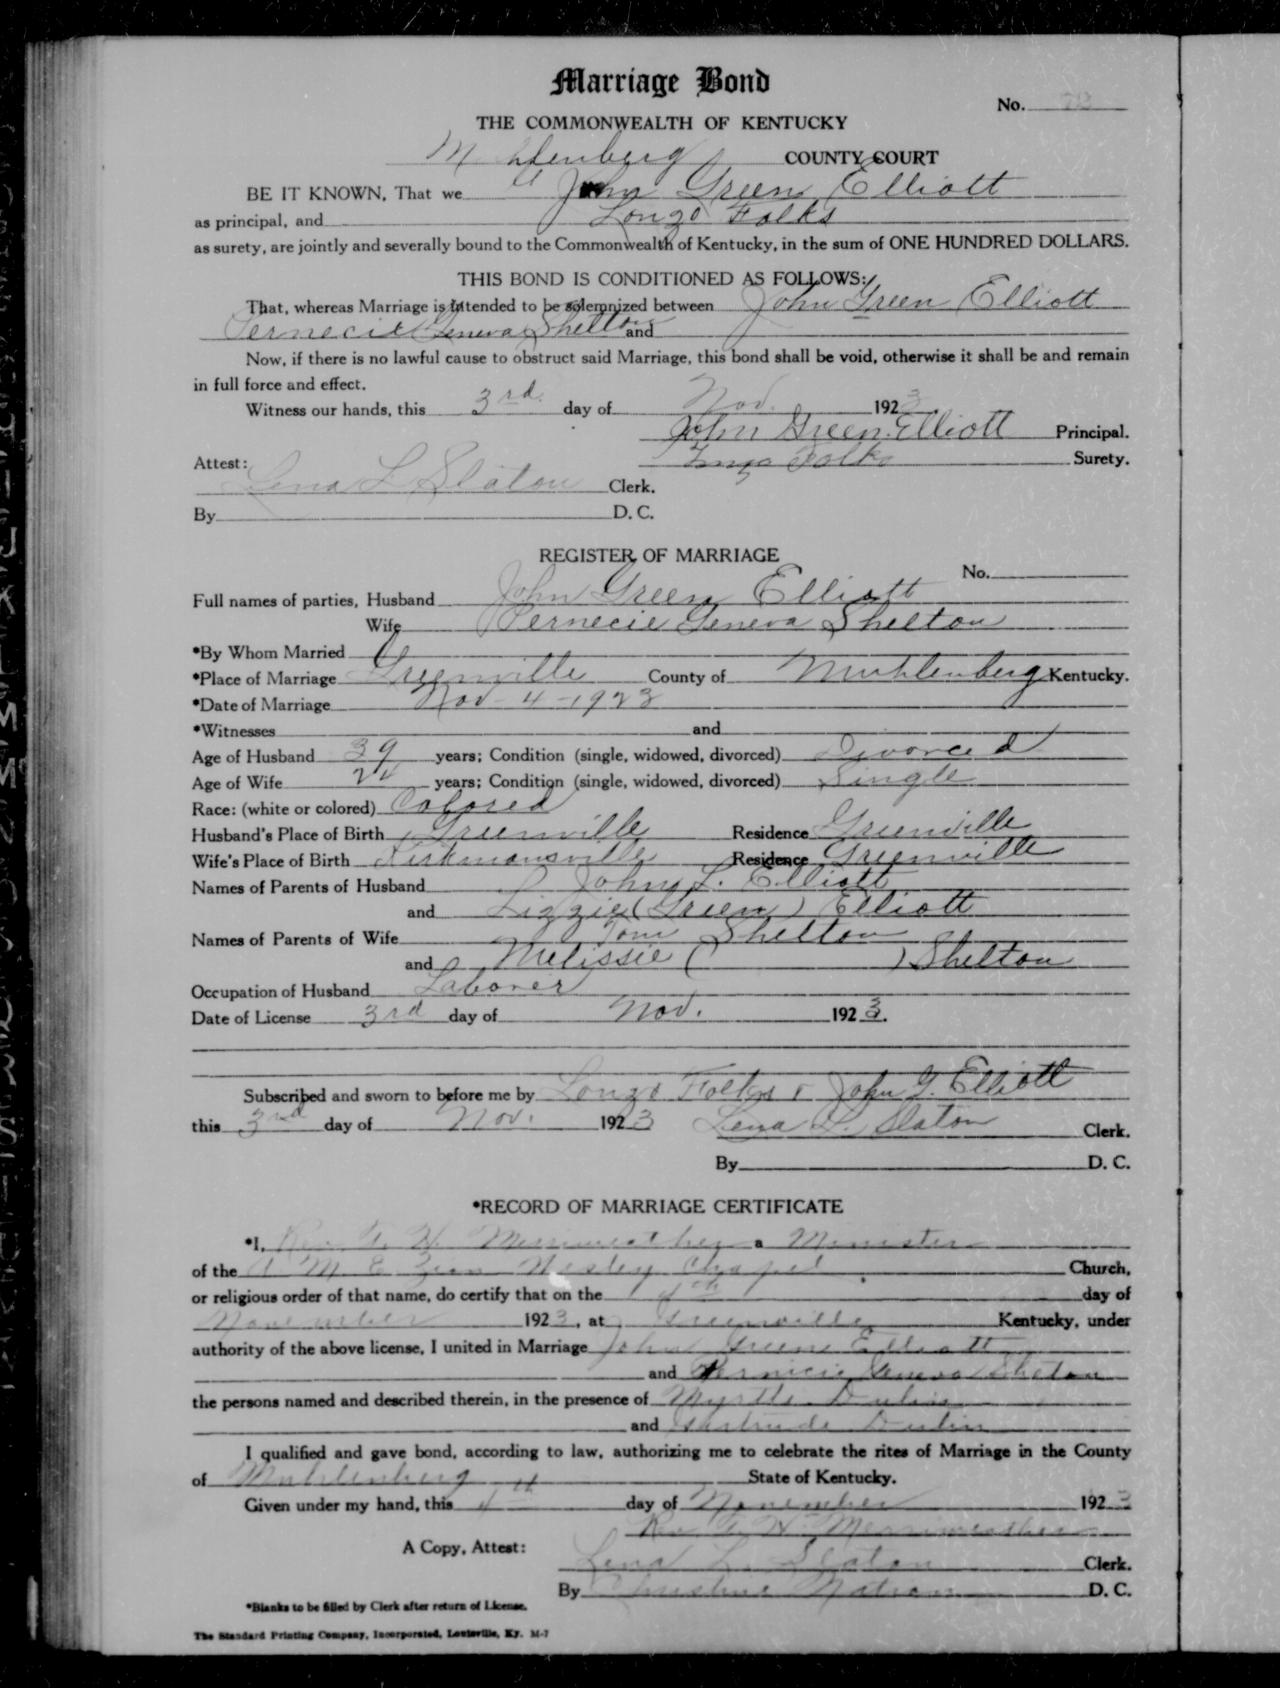 Marriage Bond
No.
THE COMMONWEALTH OF KENTUCKY
Muhlenberg COUNTY COURT
BE IT KNOWN, That we John Green Elliott
as principal, and Lonzo Folks
as surety, are jointly and severally bound to the Commonwealth of Kentucky, in the sum of ONE HUNDRED DOLLARS.
THIS BOND IS CONDITIONED AS FOLLOWS:
That, whereas Marriage is intended to be solemnized between John Green Elliott
Pernecie Geneva Shelton and
Now, if there is no lawful cause to obstruct said Marriage, this bond shall be void, otherwise it shall be and remain
in full force and effect.
Witness our hands, this 3rd. day of Nov. 1923
John Green Elliott Principal.
Attest: Lonzo Folks Surety.
Lena L Slaton Clerk.
By D. C.
REGISTER OF MARRIAGE
No.
Full names of parties, Husband John Green Elliott
Wife Pernecie Geneva Shelton
*By Whom Married
*Place of Marriage Greenville County of Muhlenberg Kentucky.
*Date of Marriage Nov-4-1923
*Witnesses and
Age of Husband 39 years; Condition (single, widowed, divorced) Divorced
Age of Wife 24 years; Condition (single, widowed, divorced) Single
Race: (white or colored) Colored
Husband's Place of Birth Greenville Residence Greenville
Wife's Place of Birth Kirkmansville Residence Greenville
Names of Parents of Husband John L. Elliott
and Lizzie (Green) Elliott
Names of Parents of Wife Tom Shelton
and Melissie ( ) Shelton
Occupation of Husband Laborer
Date of License 3rd day of Nov. 1923.
Subscribed and sworn to before me by Lonzo Folks & John G. Elliott
this 3rd day of Nov. 1923 Lena L. Slaton Clerk.
By D. C.
*RECORD OF MARRIAGE CERTIFICATE
*I, Rev. W. Merriweather a Minister
of the A M E Zion Wesley Chapel Church,
or religious order of that name, do certify that on the 4th day of
November 1923, at Greenville Kentucky, under
authority of the above license, I united in Marriage John Green Elliott
and Pernicie Geneva Shelton
the persons named and described therein, in the presence of Myrtle Dulin
and Gertrude Dulin
I qualified and gave bond, according to law, authorizing me to celebrate the rites of Marriage in the County
of Muhlenberg State of Kentucky.
Given under my hand, this 4th day of November 1923
Rev. W. Merriweather
A Copy, Attest: Lena L. Slaton Clerk.
By Christine D. C.
*Blanks to be filled by Clerk after return of License.
The Standard Printing Company, Incorporated, Louisville, Ky. M-7